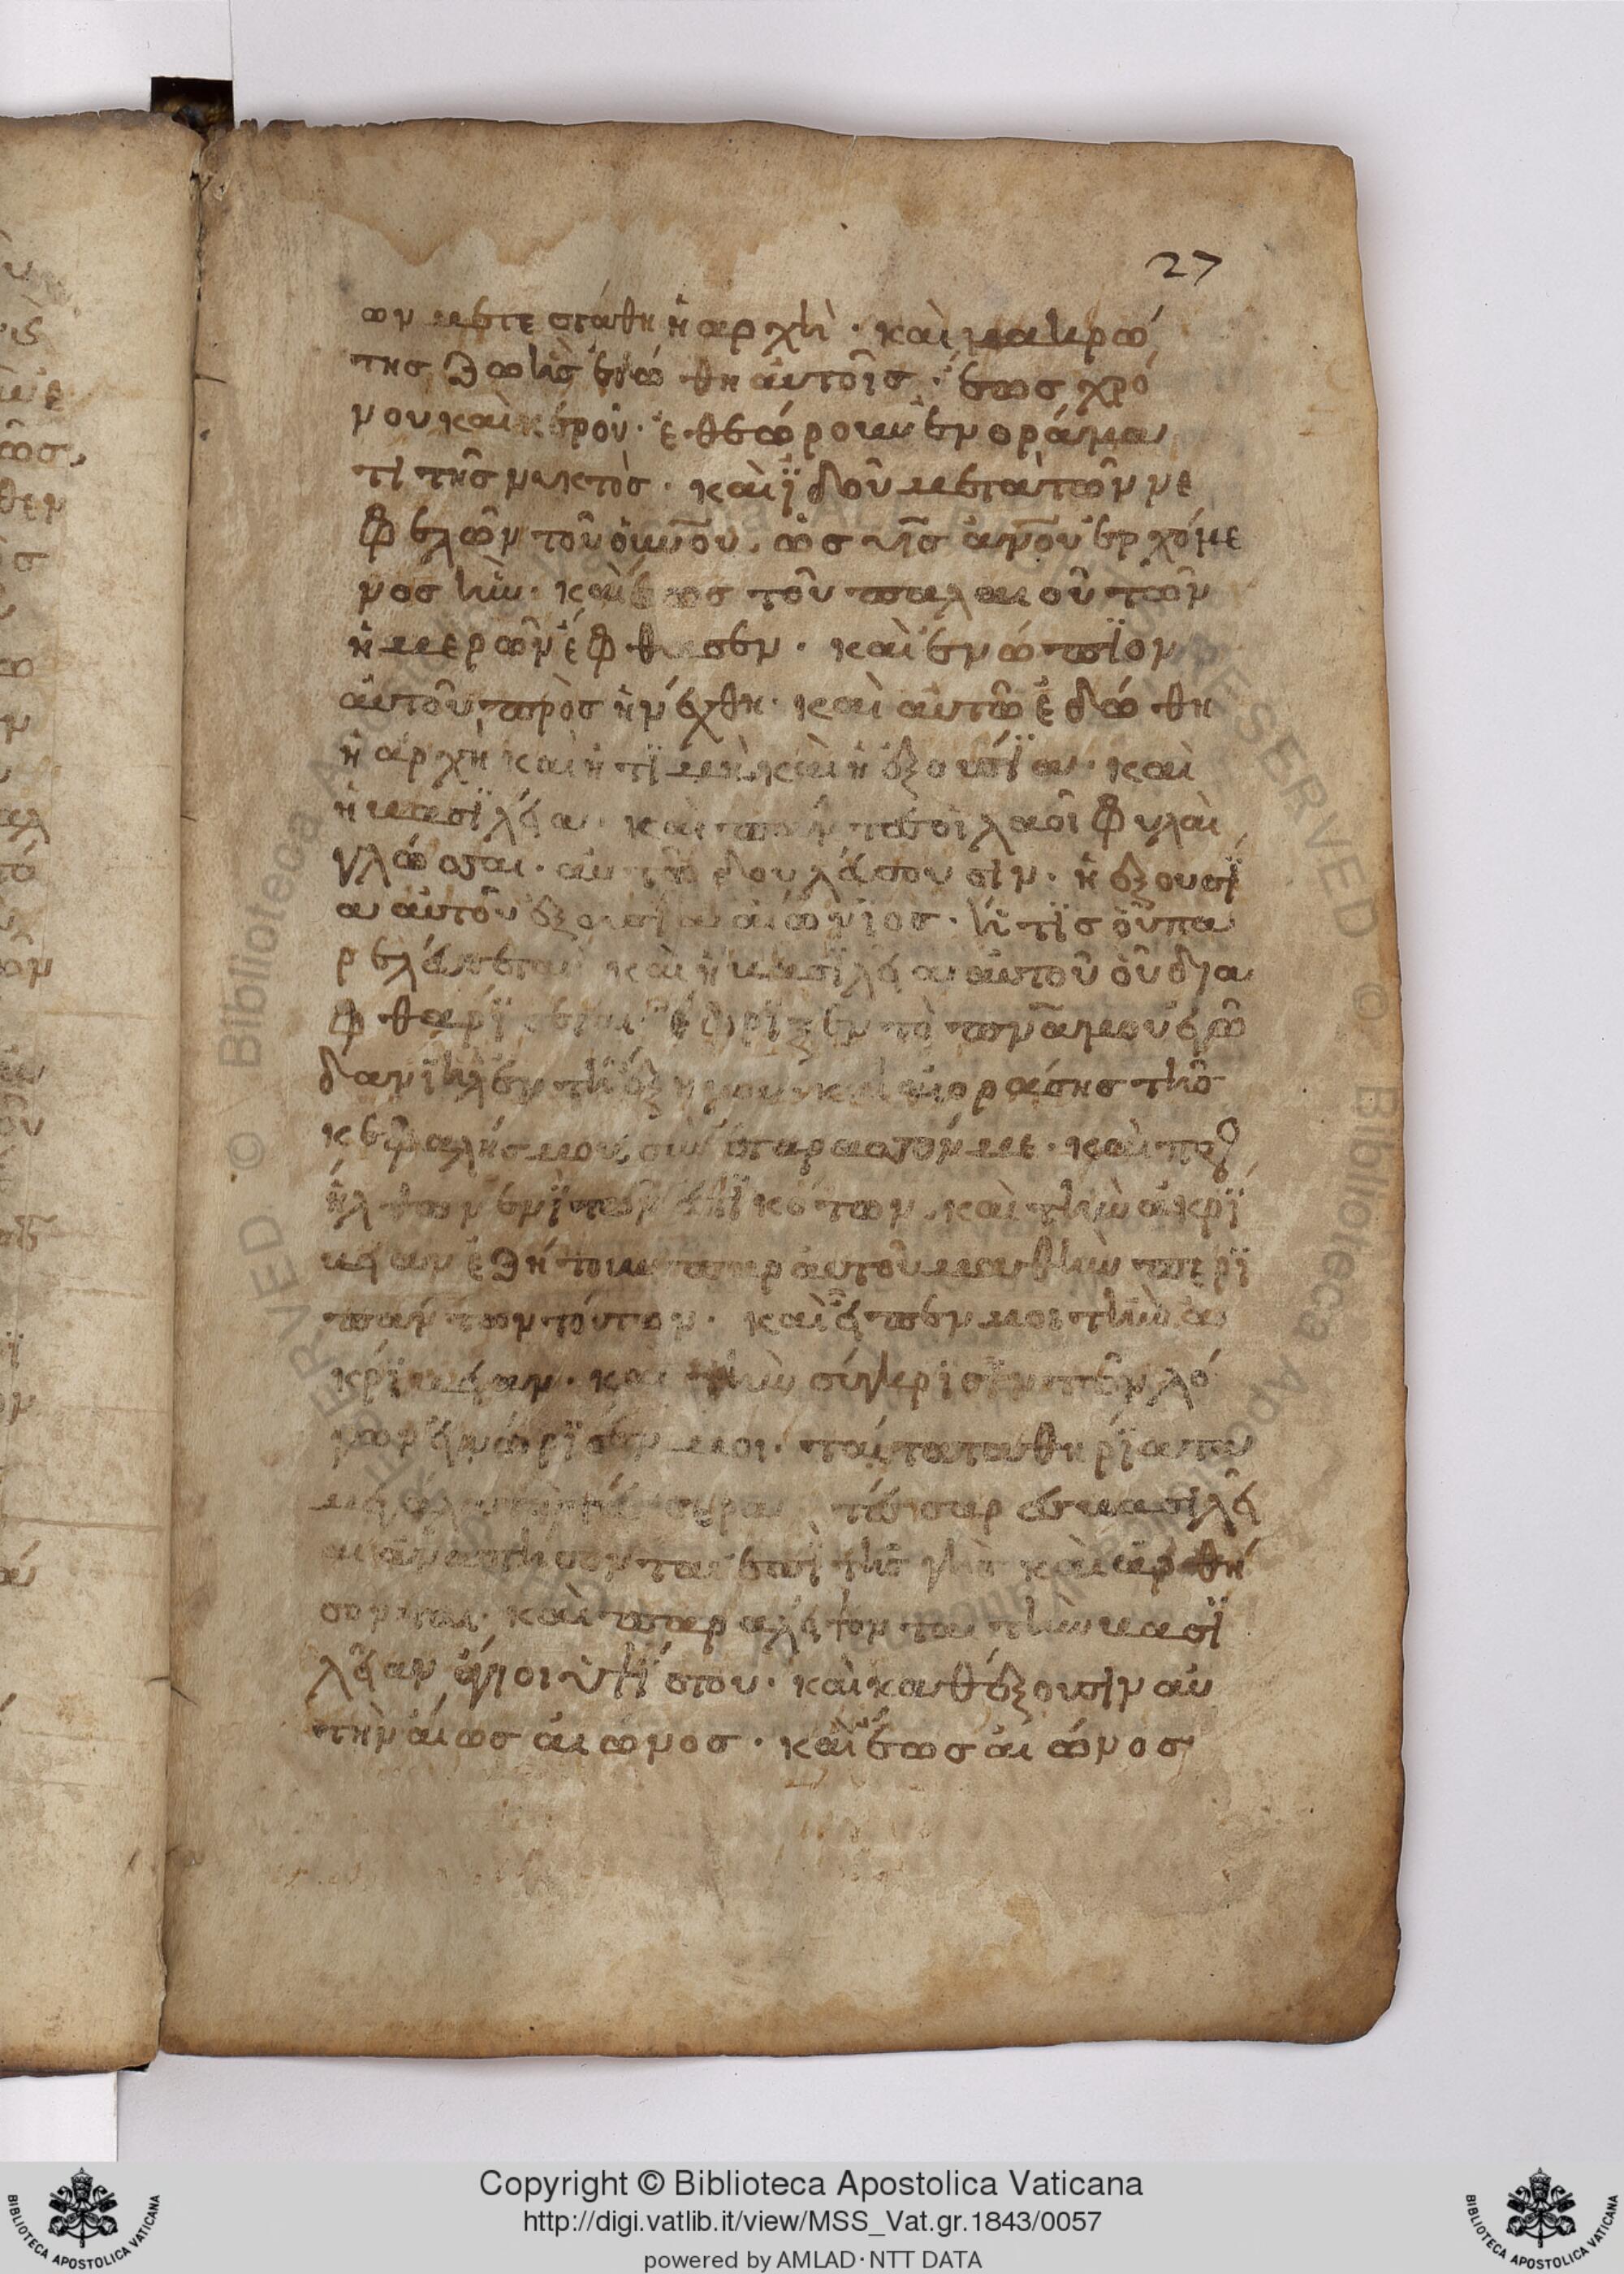 27
ων μετεστάθη ἡ αρχὴ · καὶ μακρό
της ζωῆς ἐδώθη ἀυτοῖς · ἕως χρό
νου καὶ κέρου · ἐθεόρουν ἐν οράμα
τι τῆς νυκτὸς · καὶ ϊδοῦ μετὰ τῶν νε
φελῶν τοῦ ὀυνοῦ · ὡς υἱς ἀνου ἐρχόμε
νος ἦν · καὶ ἕως τοῦ παλαιοῦ τῶν
ἡμερῶν ἔφθασεν · καὶ ἐνώπϊον
ἀυτοῦ προσηνέχθη · καὶ αυτῶ ἐδώθη
ἡ αρχὴ καὶ ἡ τϊμὴ καὶ ἡ ἐξουσΐα · καὶ
ἡ βασϊλεία · καὶ πάντες οἱ λαοῖ φυλαὶ
γλῶσσαι · αυτῶ δουλέυσουσιν · ἡ εξουσϊ
α ἀυτοῦ ἐξουσία αιώνιος · ἥ τϊς ὀυ πα
ρελέυσεται · καὶ ἡ βασϊλεία ἀυτοῦ ὀυ δια
φθαρΐσεται · ἔφριξεν τὸ πνα μου ἐγῶ
δανϊὴλ ἐν τῆ ἕξη μου · καὶ αἱ οράσης τῆς
κεφαλῆς μου συνεταρασσόν με · καὶ προς
ῆλθον ενὶ τῶν ἑστϊκότων · καὶ τὴν ἀκρΐ
βειαν ἐζήτουν παρ ἀυτοῦ μαθεῖν περϊ
πάντων τούτων · καὶ εἶπεν μοι τὴν ἀ
κρίβειαν · καὶ τὴν σύγκρισϊν τῶν λό
γων ἐγνώρϊσέν μοι · ταύτα τα θηρΐα τα
μεγάλα τὰ τέσσερα · τέσσαρες βασιλεῖ
αι ἀναστήσονται επὶ τῆς γῆς καὶ αρθή
σονται · καὶ παραλείψονται τὴν βασϊ
λείαν ἅγιοι ὑψΐστου · καὶ καθέξουσιν αυ
τὴν ἀίως αιῶνος · καὶ ἕως αιῶνος
Copyright © Biblioteca Apostolica Vaticana
http://digi.vatlib.it/view/MSS_Vat.gr.1843/0057
powered by AMLAD·NTT DATA